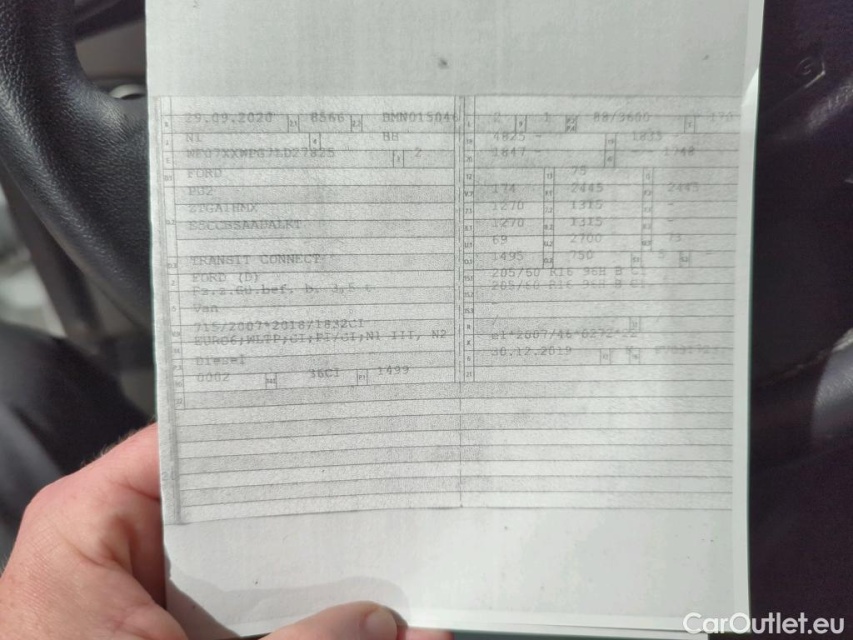 29.09.2020 8566 BMN015046
N1 BB
2
FORD
PU2
TRANSIT CONNECT
FORD (D)
Fz.z.Gü.bef. b. 3,5 t
Van
715/2007*2018/1832CI
EURO6;WLTP;CI;PI/CI;N1 III, N2
Diesel
0002 36CI 1499
2 1 88/3600 170
4825 - 1835
1847 - 1748
75
174 2445 2445
1270 1315 -
1270 1315 -
69 2700 73
1495 750 5 -
205/60 R16 96H B C1
205/60 R16 96H B C1
-
e1*2007/46*0272*22
30.12.2019
CarOutlet.eu